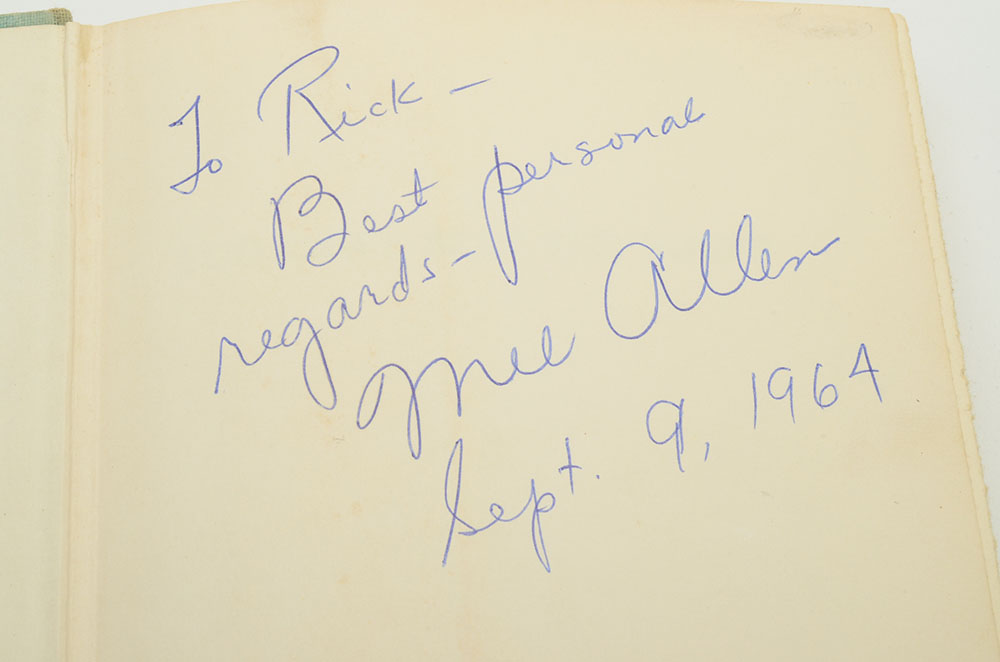 To Rick -
Best personal
regards -
Mel Allen
Sept. 9, 1964